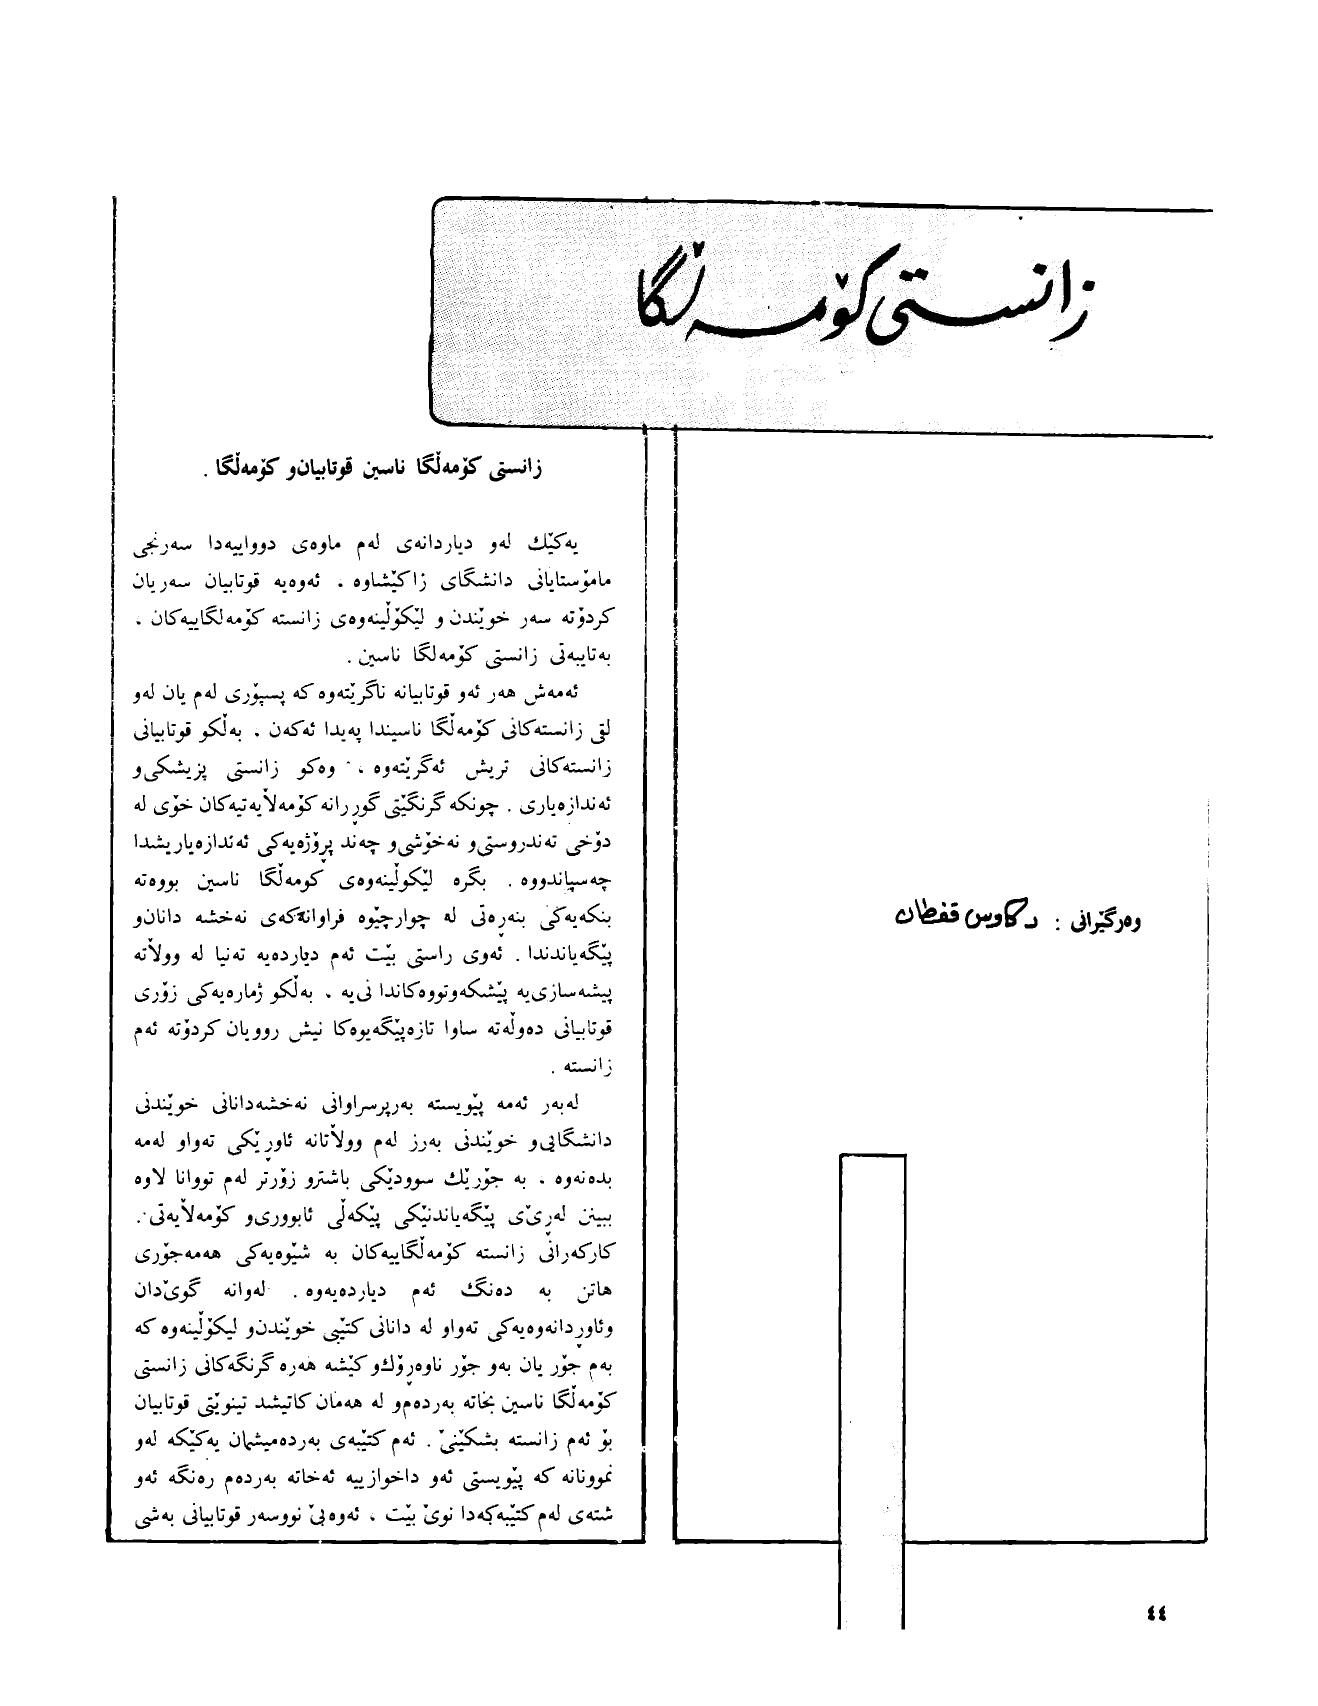 زانستی کۆمەڵگا
وەرگێرانی : د. کاوس قفطان
زانستی کۆمەڵگا ناسین قوتابیان‌و کۆمەڵگا .
یەکێك لەو دیاردانەی لەم ماوەی دوواییەدا سەرنجی
مامۆستایانی دانشگای ڕاکێشاوە ، ئەوەیە قوتابیان سەریان
کردۆتە سەر خوێندن و لێکۆڵینەوەی زانستە کۆمەلگاییەکان ،
بەتایبەتی زانستی کۆمەلگا ناسین .
ئەمەش هەر ئەو قوتابیانە ناگرێتەوە کە پسپۆری لەم یان لەو
لقی زانستەکانی کۆمەڵگا ناسیندا پەیدا ئەکەن ، بەڵکو قوتابیانی
زانستەکانی تریش ئەگرێتەوە ، وەکو زانستی پزیشکی‌و
ئەندازەیاری . چونکە گرنگێتی گوررانە کۆمەڵایەتیەکان خۆی لە
دۆخی تەندروستی‌و نەخۆشی‌و چەند پرۆژەیەکی ئەندازەیاریشدا
چەسپاندووە . بگرە لێکوڵینەوەی کومەڵگا ناسین بووەتە
بنکەیەکی بنەرەتی لە چوارچێوە فراوانەکەی نەخشە دانان‌و
پێگەیاندندا . ئەوی راستی بێت ئەم دیاردەیە تەنیا لە وولاتە
پیشەسازی‌یە پێشکەوتووەکاندا نی‌یە ، بەڵکو ژمارەیەکی زۆری
قوتابیانی دەوڵەتە ساوا تازەپێگەیوەکا نیش روویان کردۆتە ئەم
زانستە .
لەبەر ئەمە پێویستە بەرپرسراوانی نەخشەدانانی خوێندنی
دانشگایی‌و خوێندنی بەرز لەم وولاتانە ئاورێکی تەواو لەمە
بدەنەوە ، بە جۆرێك سوودێکی باشترو زۆرتر لەم تووانا لاوە
ببینن لەرێی پێگەیاندنێکی پێکەڵی ئابووری‌و کۆمەلایەتی .
کارکەرانی زانستە کۆمەڵگاییەکان بە شێوەیەکی هەمەجۆری
هاتن بە دەنگ ئەم دیاردەیەوە . لەوانە گوێ‌دان
وئاوردانەوەیەکی تەواو لە دانانی کتێبی خوێندن‌و لیکۆڵینەوە کە
بەم جۆر یان بەو جۆر ناوەرۆك‌و کێشە هەرە گرنگەکانی زانستی
کۆمەڵگا ناسین بخاتە بەردەم‌و لە هەمان کاتیشد تینوێتی قوتابیان
بۆ ئەم زانستە بشکێنێ . ئەم کتێبەی بەردەمیشمان یەکێکە لەو
نموونانە کە پێویستی ئەو داخوازییە ئەخاتە بەردەم رەنگە ئەو
شتەی لەم کتێبەکەدا نوێ بێت ، ئەوەبێ نووسەر قوتابیانی بەشی
٤٤